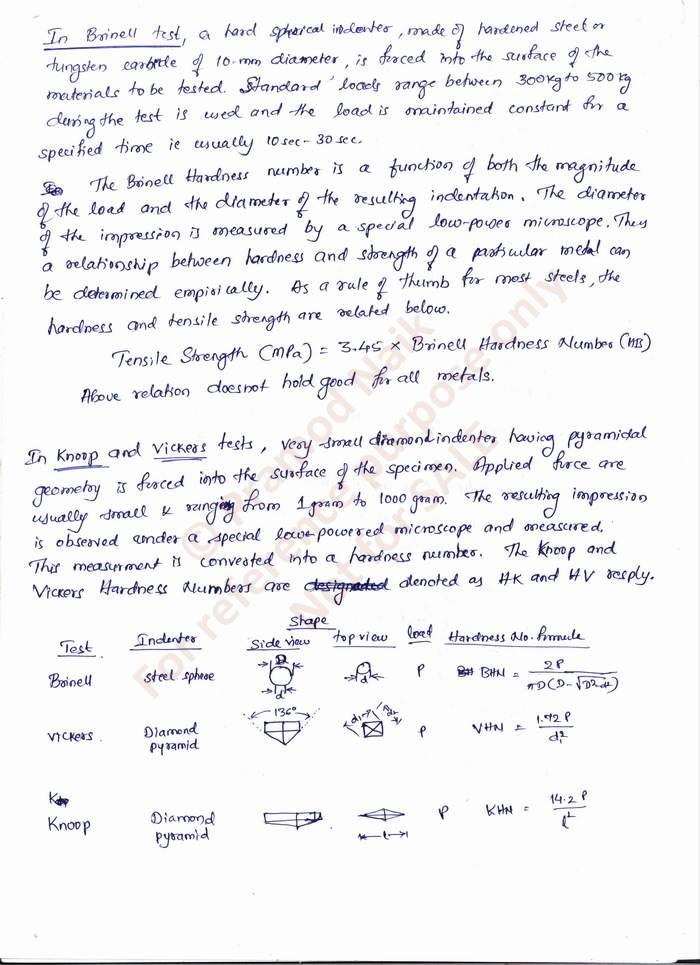 In Brinell test, a hard spherical indenter, made of hardened steel or
tungsten carbide of 10-mm diameter, is forced into the surface of the
materials to be tested. Standard loads range between 300kg to 500kg
during the test is used and the load is maintained constant for a
specified time ie usually 10sec-30sec.
The Brinell Hardness number is a function of both the magnitude
of the load and the diameter of the resulting indentation. The diameter
of the impression is measured by a special low-power microscope. Thus
a relationship between hardness and strength of a particular metal can
be determined empirically. As a rule of thumb for most steels, the
hardness and tensile strength are related below.
Tensile Strength (MPa) = 3.45 × Brinell Hardness Number (HB)
Above relation doesnot hold good for all metals.
In Knoop and Vickers tests, very small diamond indenter having pyramidal
geometry is forced into the surface of the specimen. Applied force are
usually small & ranging from 1gram to 1000 gram. The resulting impression
is observed under a special low-powered microscope and measured.
This measurment is converted into a hardness number. The Knoop and
Vickers Hardness Numbers are designated denoted as HK and HV resply.
Shape
Test Indenter side view top view load Hardness No. formula
Brinell steel sphere D d d P BHN = 2P / πD(D-√D²-d²)
Vickers. Diamond pyramid 136° d₁ d₁ P VHN = 1.72P / d₁²
Knoop Diamond pyramid l P KHN = 14.2P / l²
© Pramod Naik
For reference Purpose only
Not for SALE